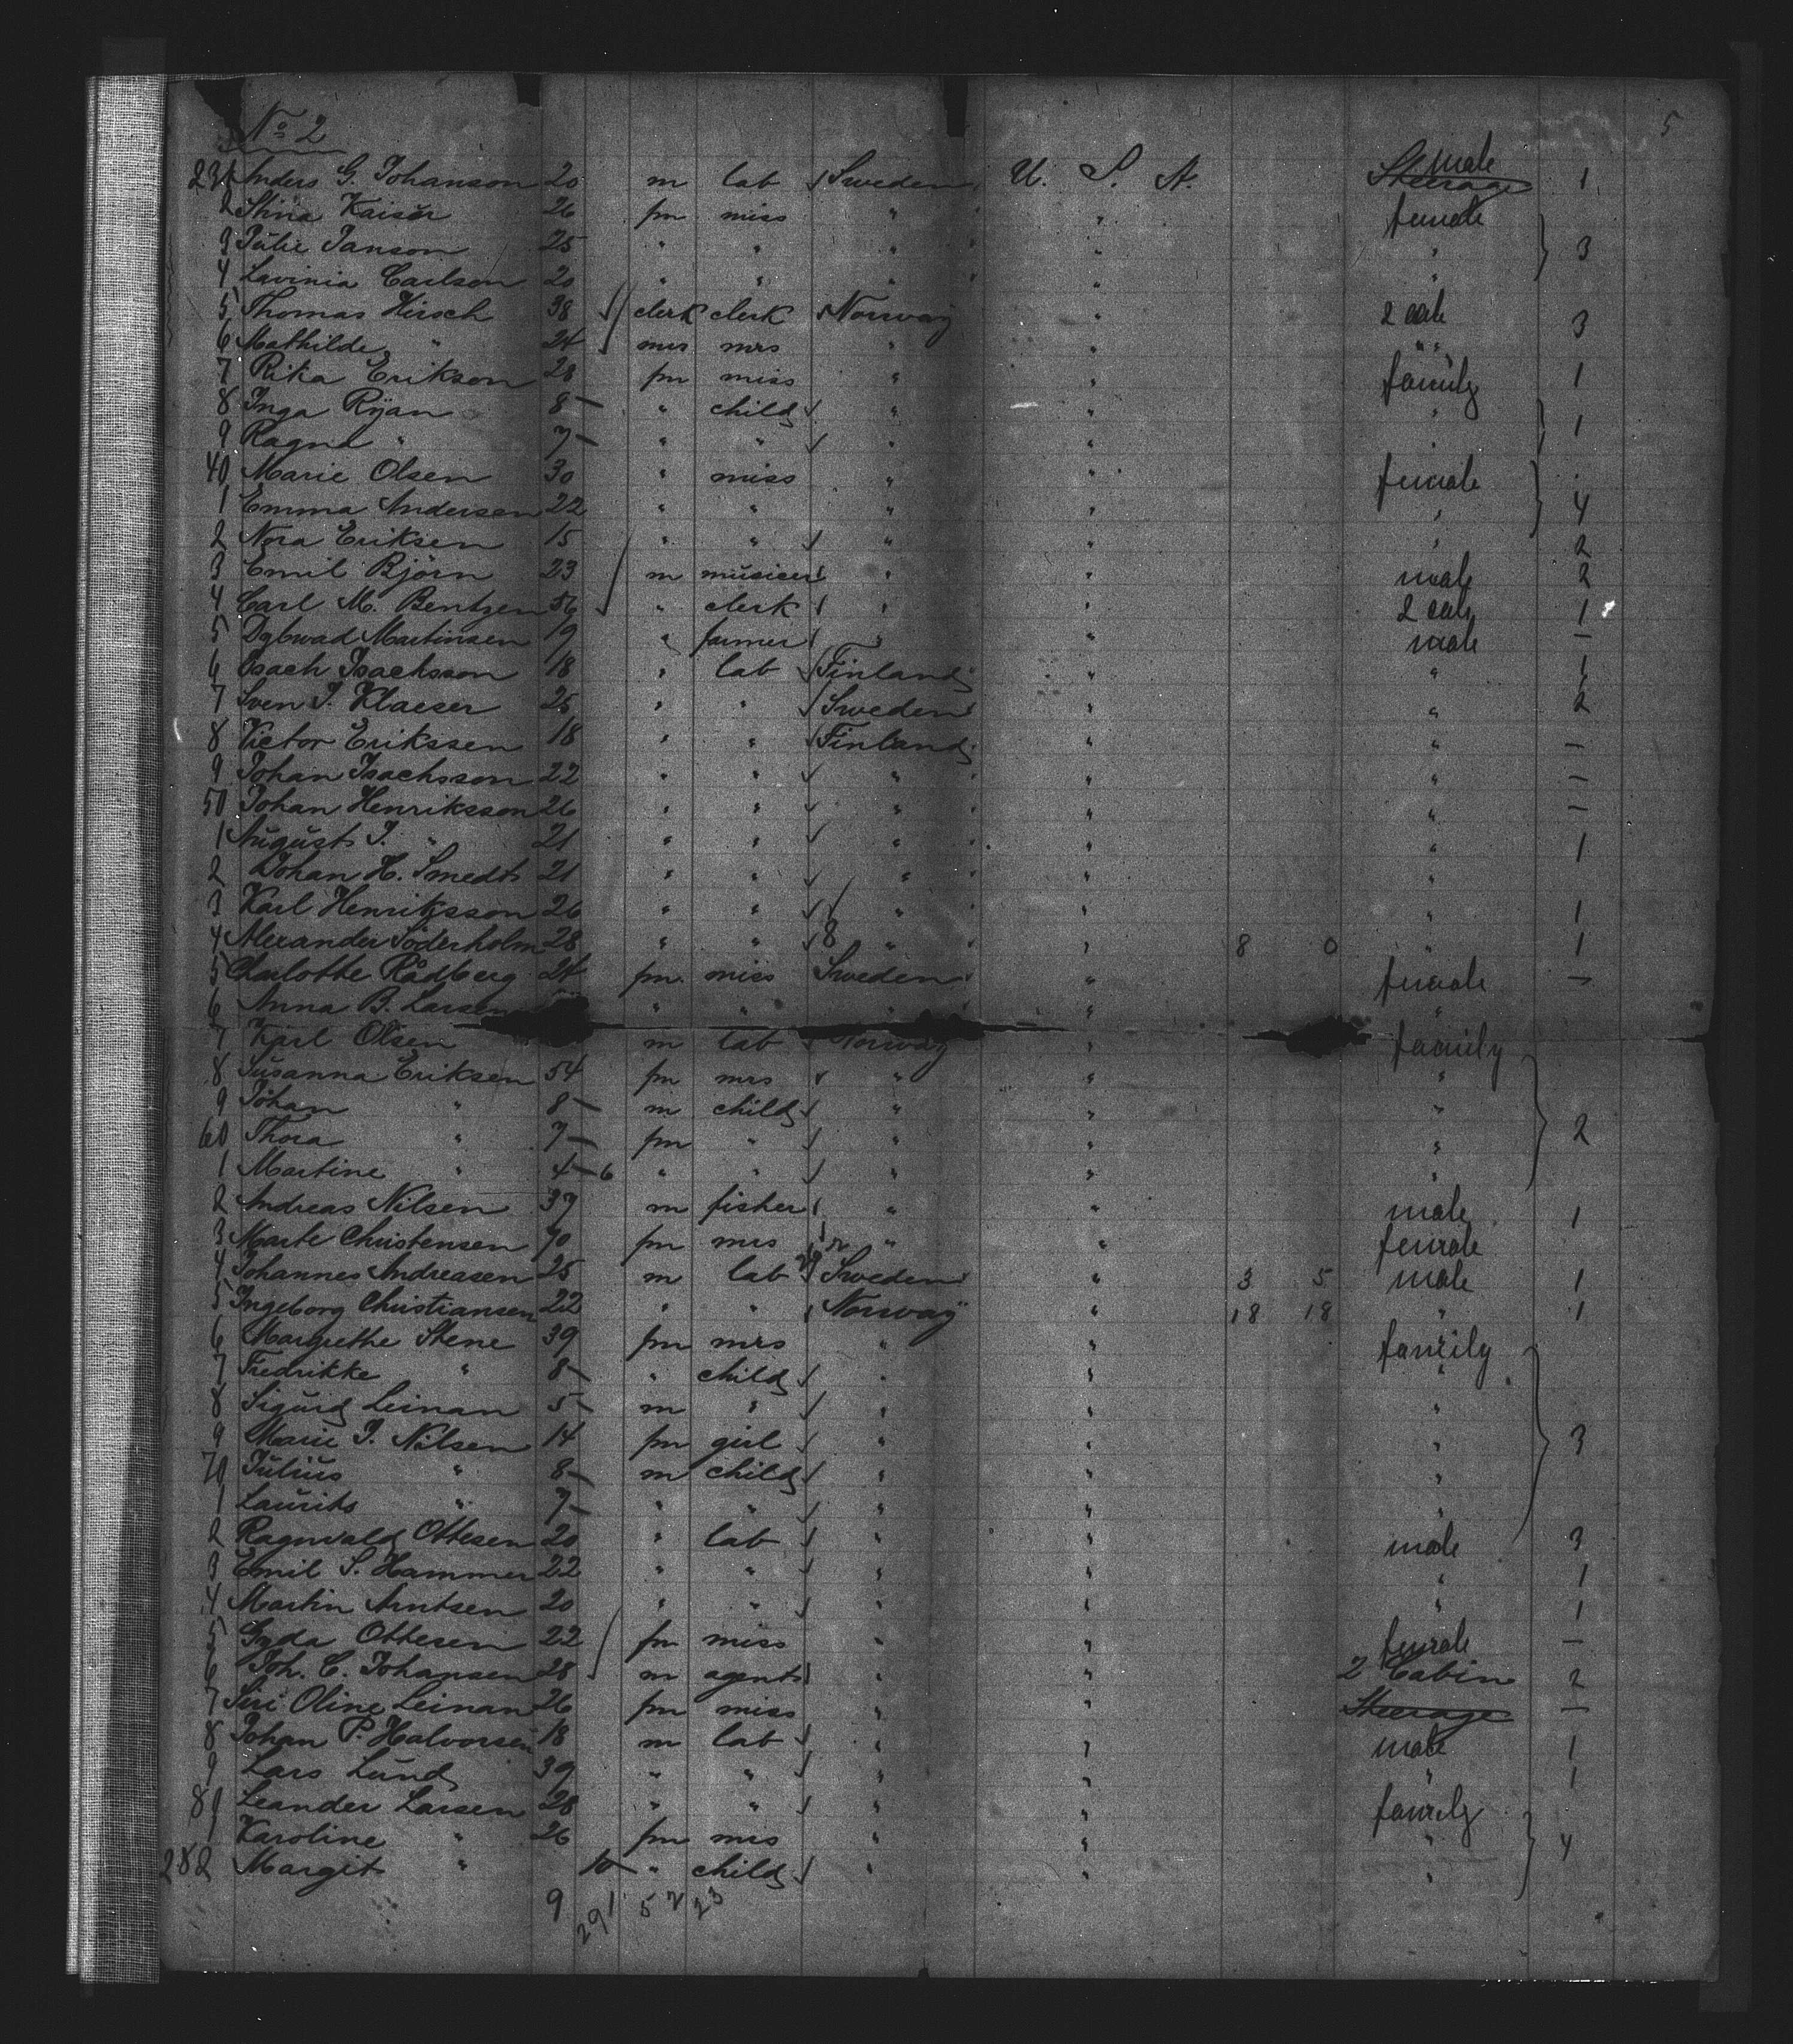 No 2
5
231 Anders G. Johanson 20 m lab Sweden U. S. A. male Steerage 1
2 Stina Kaiser 26 fm miss " " female
3 Julie Janson 25 " " " " " 3
4 Lavinia Carlson 20 " " " " "
5 Thomas Hirsch 38 clerk clerk Norway " 2 cab 3
6 Mathilde " 24 mrs mrs " " " "
7 Rika Erikson 28 fm miss " " family 1
8 Inga Ryan 8 — " child " " "
9 Ragna " 7 — " " " " " 1
40 Marie Olsen 30 " miss " " female
1 Emma Andersen 22 " " " " " 4
2 Nora Eriksen 15 " " " " " 2
3 Emil Björn 23 m musicer " " male 2
4 Carl M. Bentzen 56 " clerk " " 2 cab 1
5 Dybwad Martinsen 19 " farmer " " male —
6 Isach Isachsson 18 " lab Finland " " 1
7 Sven J. Klaeser 25 " " Sweden " " 2
8 Victor Erikssen 18 " " Finland " " —
9 Johan Isachsson 22 " " " " " —
50 Johan Henriksson 26 " " " " " —
1 August J. " 21 " " " " " 1
2 Johan H. Smedt 21 " " " " "
3 Karl Henriksson 26 " " " " " 1
4 Alexander Söderholm 28 " " 8 " " 8 0 " 1
5 Charlotte Rådberg 24 fm. miss Sweden " female —
6 Anna B. Larsen " " " " "
7 Karl Olsen m lab Norway " family
8 Susanna Eriksen 54 fm mrs " " "
9 Johan " 8 — m child " " "
60 Thora " 7 — fm " " " " 2
1 Martine " 4 — 6 " " " " "
2 Andreas Nilsen 37 m fisher " " male 1
3 Marte Christensen 70 fm mrs " " female
4 Johannes Andreasen 25 m lab Sweden " 3 5 male 1
5 Ingeborg Christiansen 22 " " Norway " 18 18 " 1
6 Margrethe Stene 39 fm mrs " " family
7 Fredrikke " 8 — " child " " "
8 Sigurd Leinan 5 — m " " " "
9 Marie J. Nilsen 14 fm girl " " " 3
70 Julius " 8 — m child " " "
1 Laurits " 7 — " " " " "
2 Ragnvald Ottesen 20 " lab " " male 3
3 Emil S. Hammer 22 " " " " " 1
4 Martin Arntsen 20 " " " " " 1
5 Gyda Ottesen 22 fm miss " " female —
6 Joh. C. Johansen 28 m agent " " 2 Cabin 2
7 Siri Oline Leinan 26 fm miss " " Steerage —
8 Johan P. Halvorsen 18 m lab " " male 1
9 Lars Lund 39 " " " " " 1
80 Leander Larsen 28 " " " " family
1 Karoline " 26 fm mrs " " " 4
282 Margit " 10 — " child " " "
9 291 52 23